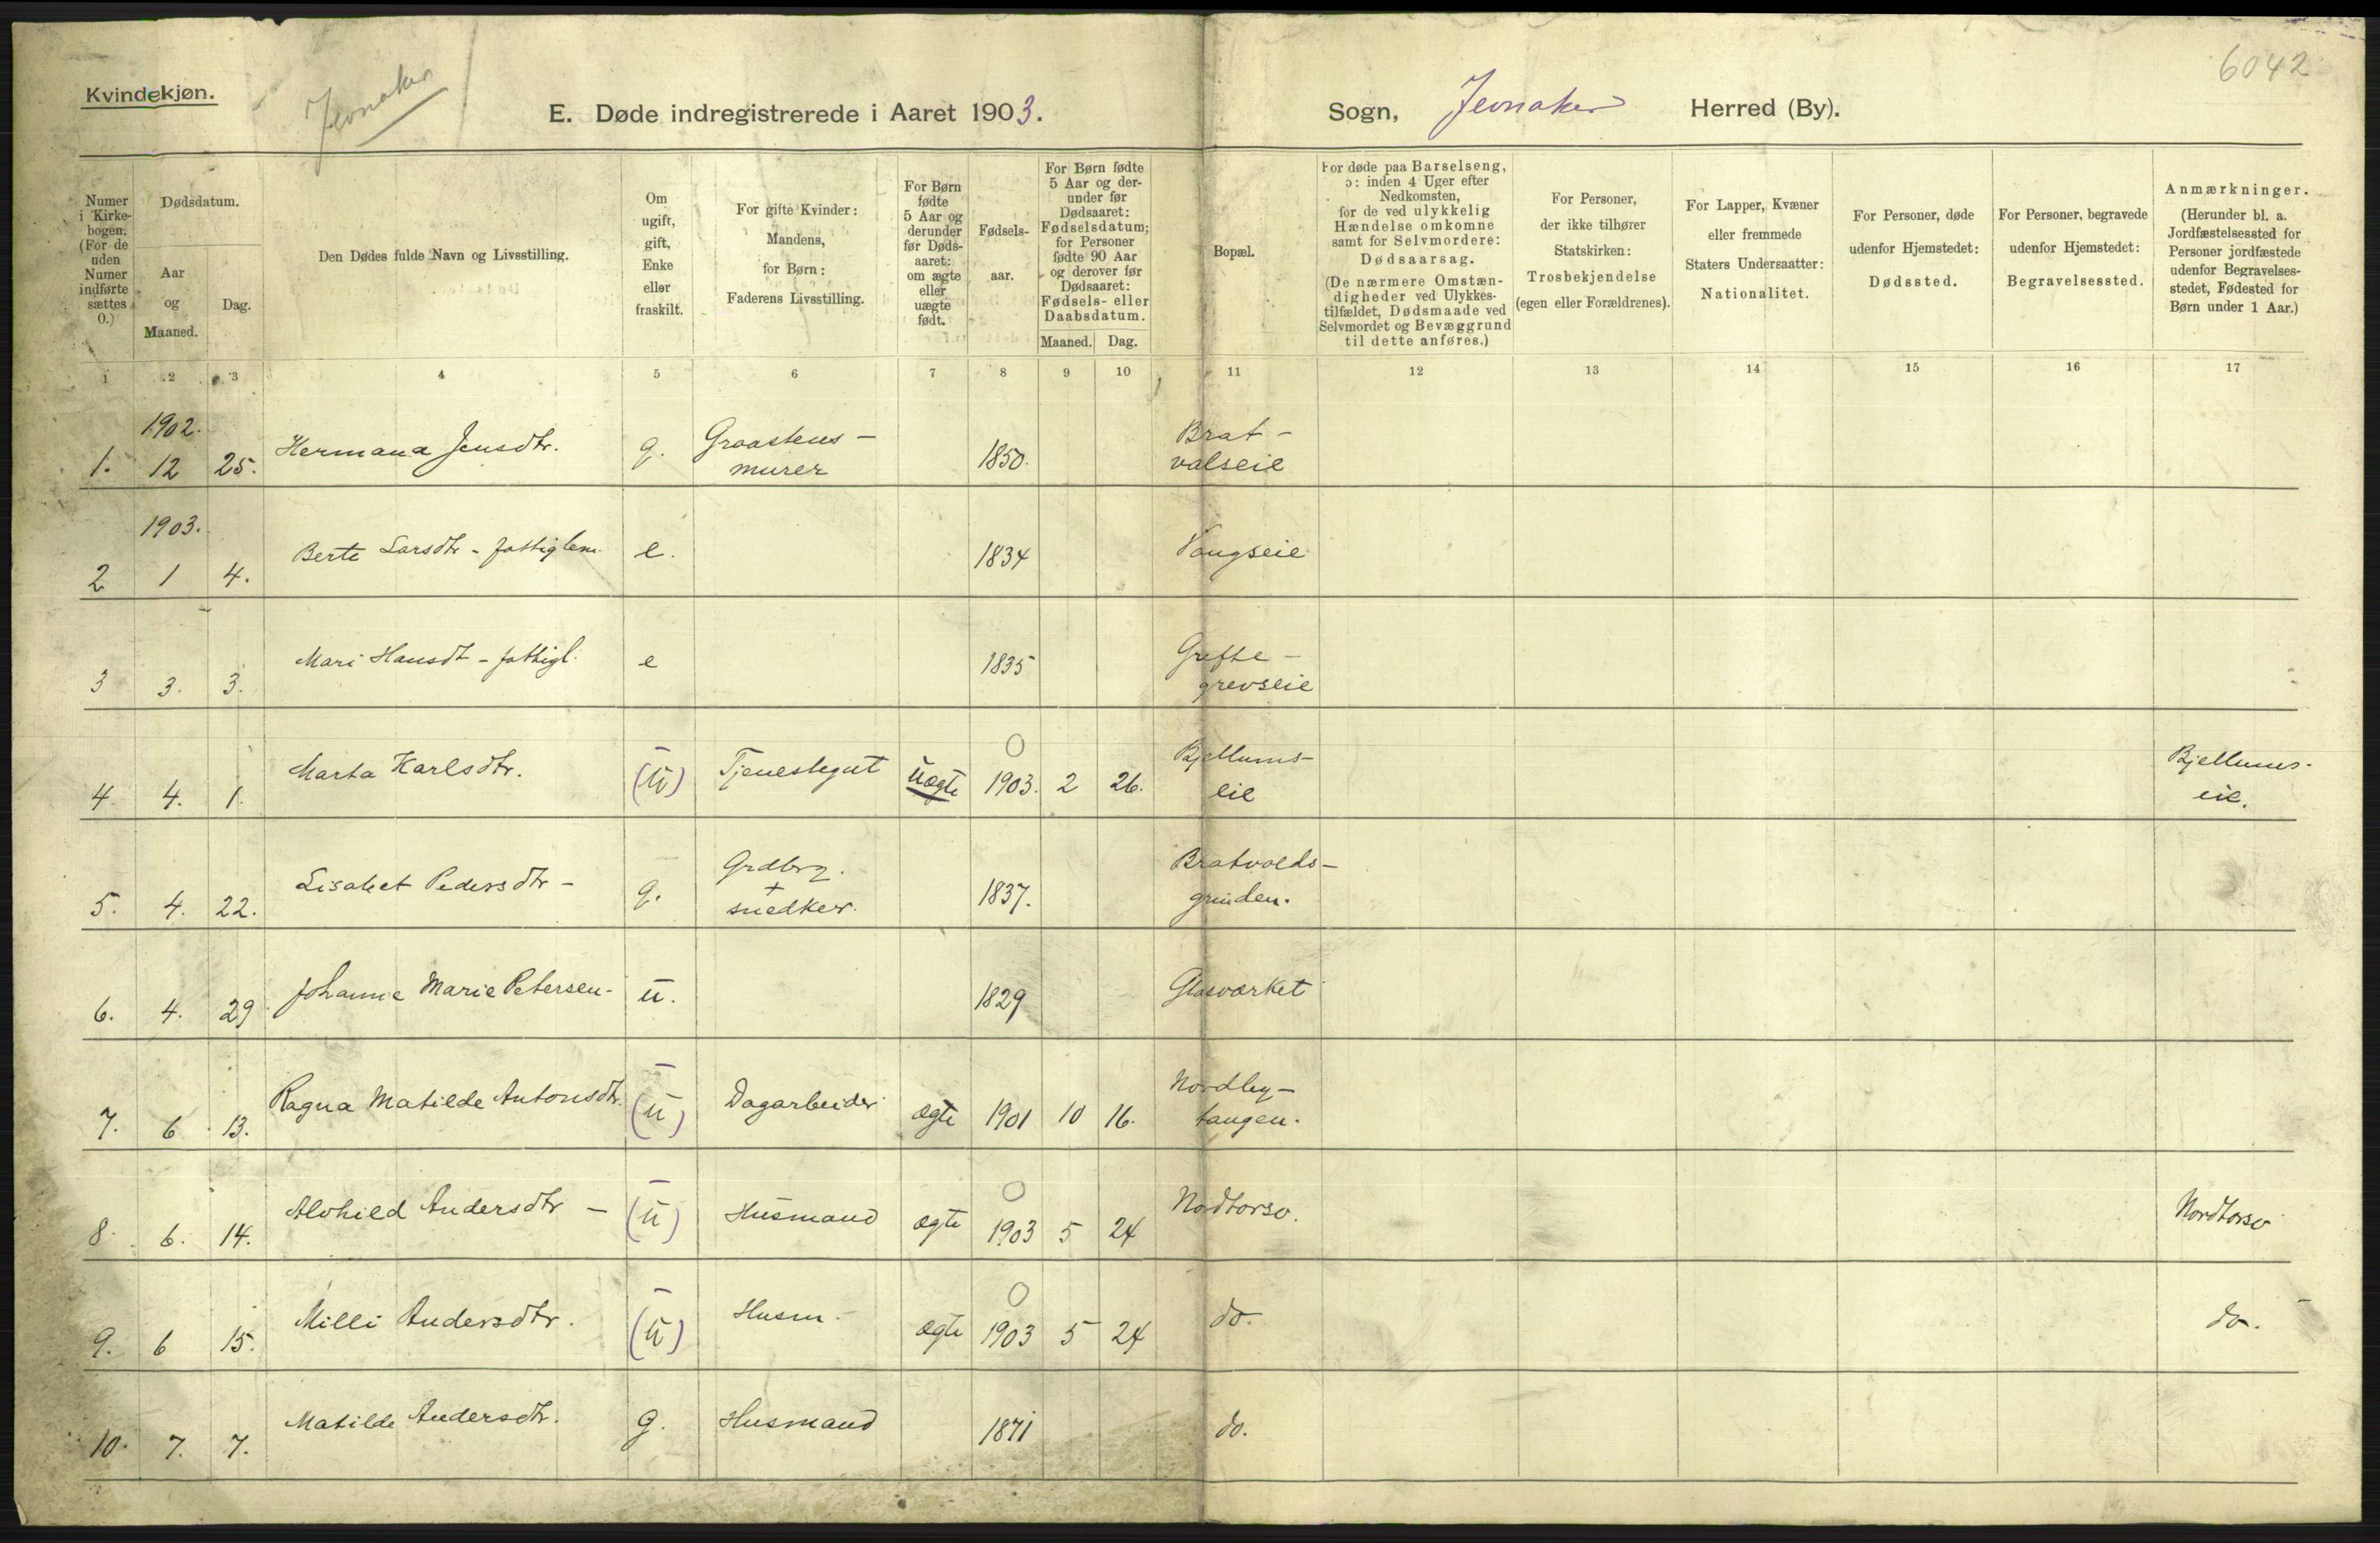 6042
Kvindekjøn.
Jevnaker
E. Døde indregistrerede i Aaret 1903.
Sogn, Jevnaker Herred (By).
Numer i Kirkebogen. (For de uden Numer indførte sættes 0.)
Dødsdatum.
Aar og Maaned.
Dag.
Den Dødes fulde Navn og Livsstilling.
Om ugift, gift, Enke eller fraskilt.
For gifte Kvinder: Mandens, for Børn: Faderens Livsstilling.
For Børn fødte 5 Aar og derunder før Dødsaaret: om ægte eller uægte født.
Fødselsaar.
For Børn fødte 5 Aar og derunder før Dødsaaret: Fødselsdatum; for Personer fødte 90 Aar og derover før Dødsaaret: Fødsels- eller Daabsdatum.
Maaned. Dag.
Bopæl.
For døde paa Barselseng, ɔ: inden 4 Uger efter Nedkomsten, for de ved ulykkelig Hændelse omkomne samt for Selvmordere: Dødsaarsag. (De nærmere Omstændigheder ved Ulykkestilfældet, Dødsmaade ved Selvmordet og Bevæggrund til dette anføres.)
For Personer, der ikke tilhører Statskirken: Trosbekjendelse (egen eller Forældrenes).
For Lapper, Kvæner eller fremmede Staters Undersaatter: Nationalitet.
For Personer, døde udenfor Hjemstedet: Dødssted.
For Personer, begravede udenfor Hjemstedet: Begravelsessted.
Anmærkninger. (Herunder bl. a. Jordfæstelsessted for Personer jordfæstede udenfor Begravelsesstedet, Fødested for Børn under 1 Aar.)
1 2 3 4 5 6 7 8 9 10 11 12 13 14 15 16 17
1902.
1. 12 25. Hermana Jensdtr. g. Graastens-murer 1850. Brat-valseie
1903.
2 1 4. Berte Larsdtr - fattiglem. e. 1834 Vangseie
3 3. 3. Mari Hansdt - fattigl. e 1835 Grefte-grevseie
4. 4. 1. Marta Karlsdtr. (u) Tjenestegut uægte 1903. 2 26. Bjellums-eie Bjellums-eie.
5. 4. 22. Lisabet Pedersdtr - g. Grdbrg. + snedker. 1837. Bratvolds-grinden.
6. 4. 29 Johanne Marie Petersen - u. 1829 Glasværket
7. 6 13. Ragna Matilde Antonsdtr. (u) Dagarbeider ægte 1901 10 16. Nordby-tangen.
8. 6. 14. Alvhild Andersdtr - (u) Husmand ægte 1903 5 24 Nordtorso. Nordtorso
9. 6 15. Milli Andersdtr. (u) Husm - ægte 1903 5 24 do. do.
10. 7. 7. Matilde Andersdtr. g. Husmand 1871 do.